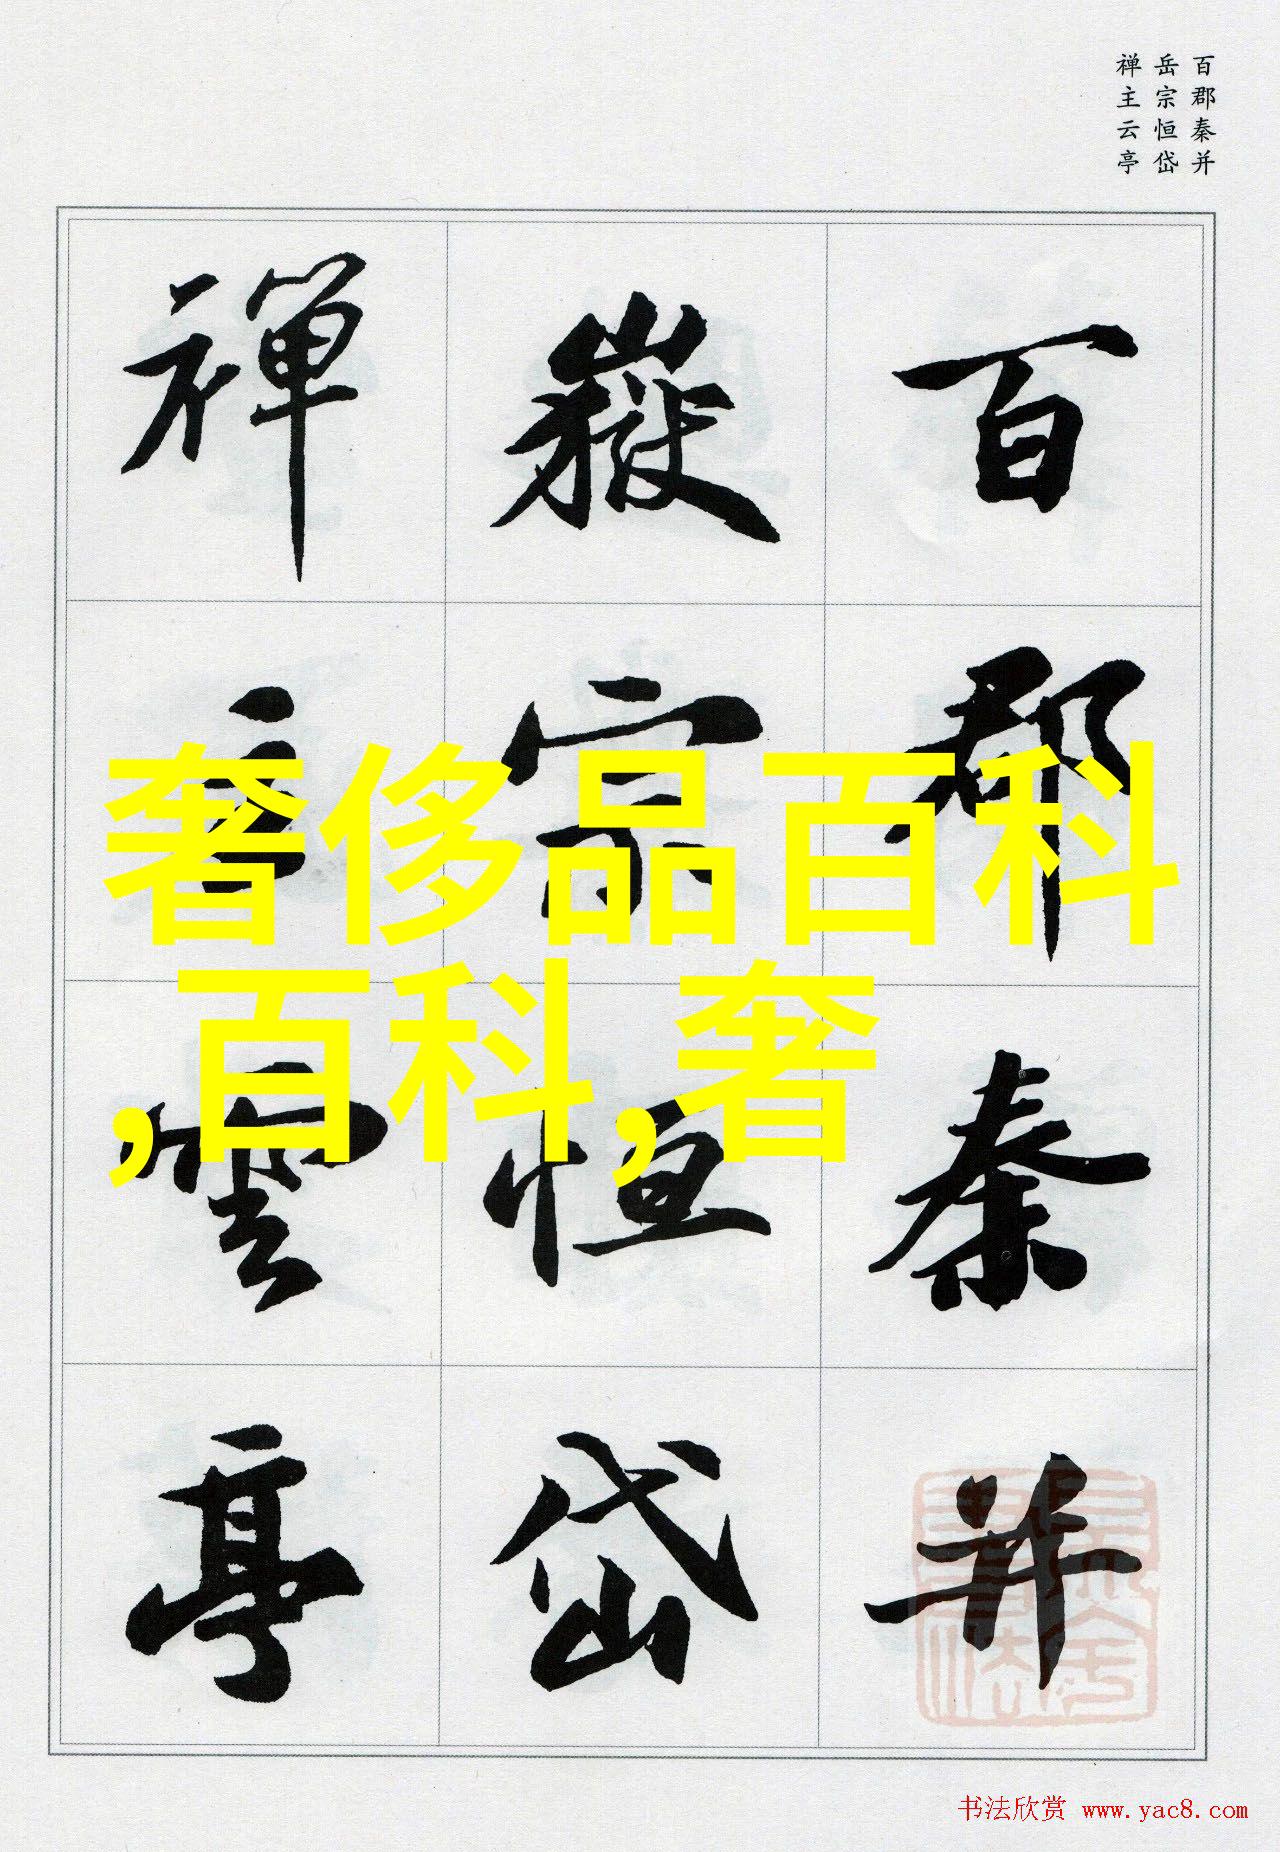 百郡秦并
岳宗恒岱
禅主云亭
百郡秦并
嶽宗恒岱
禅主雲亭
奢侈品百科
,百科,奢
书法欣赏 www.yac8.com